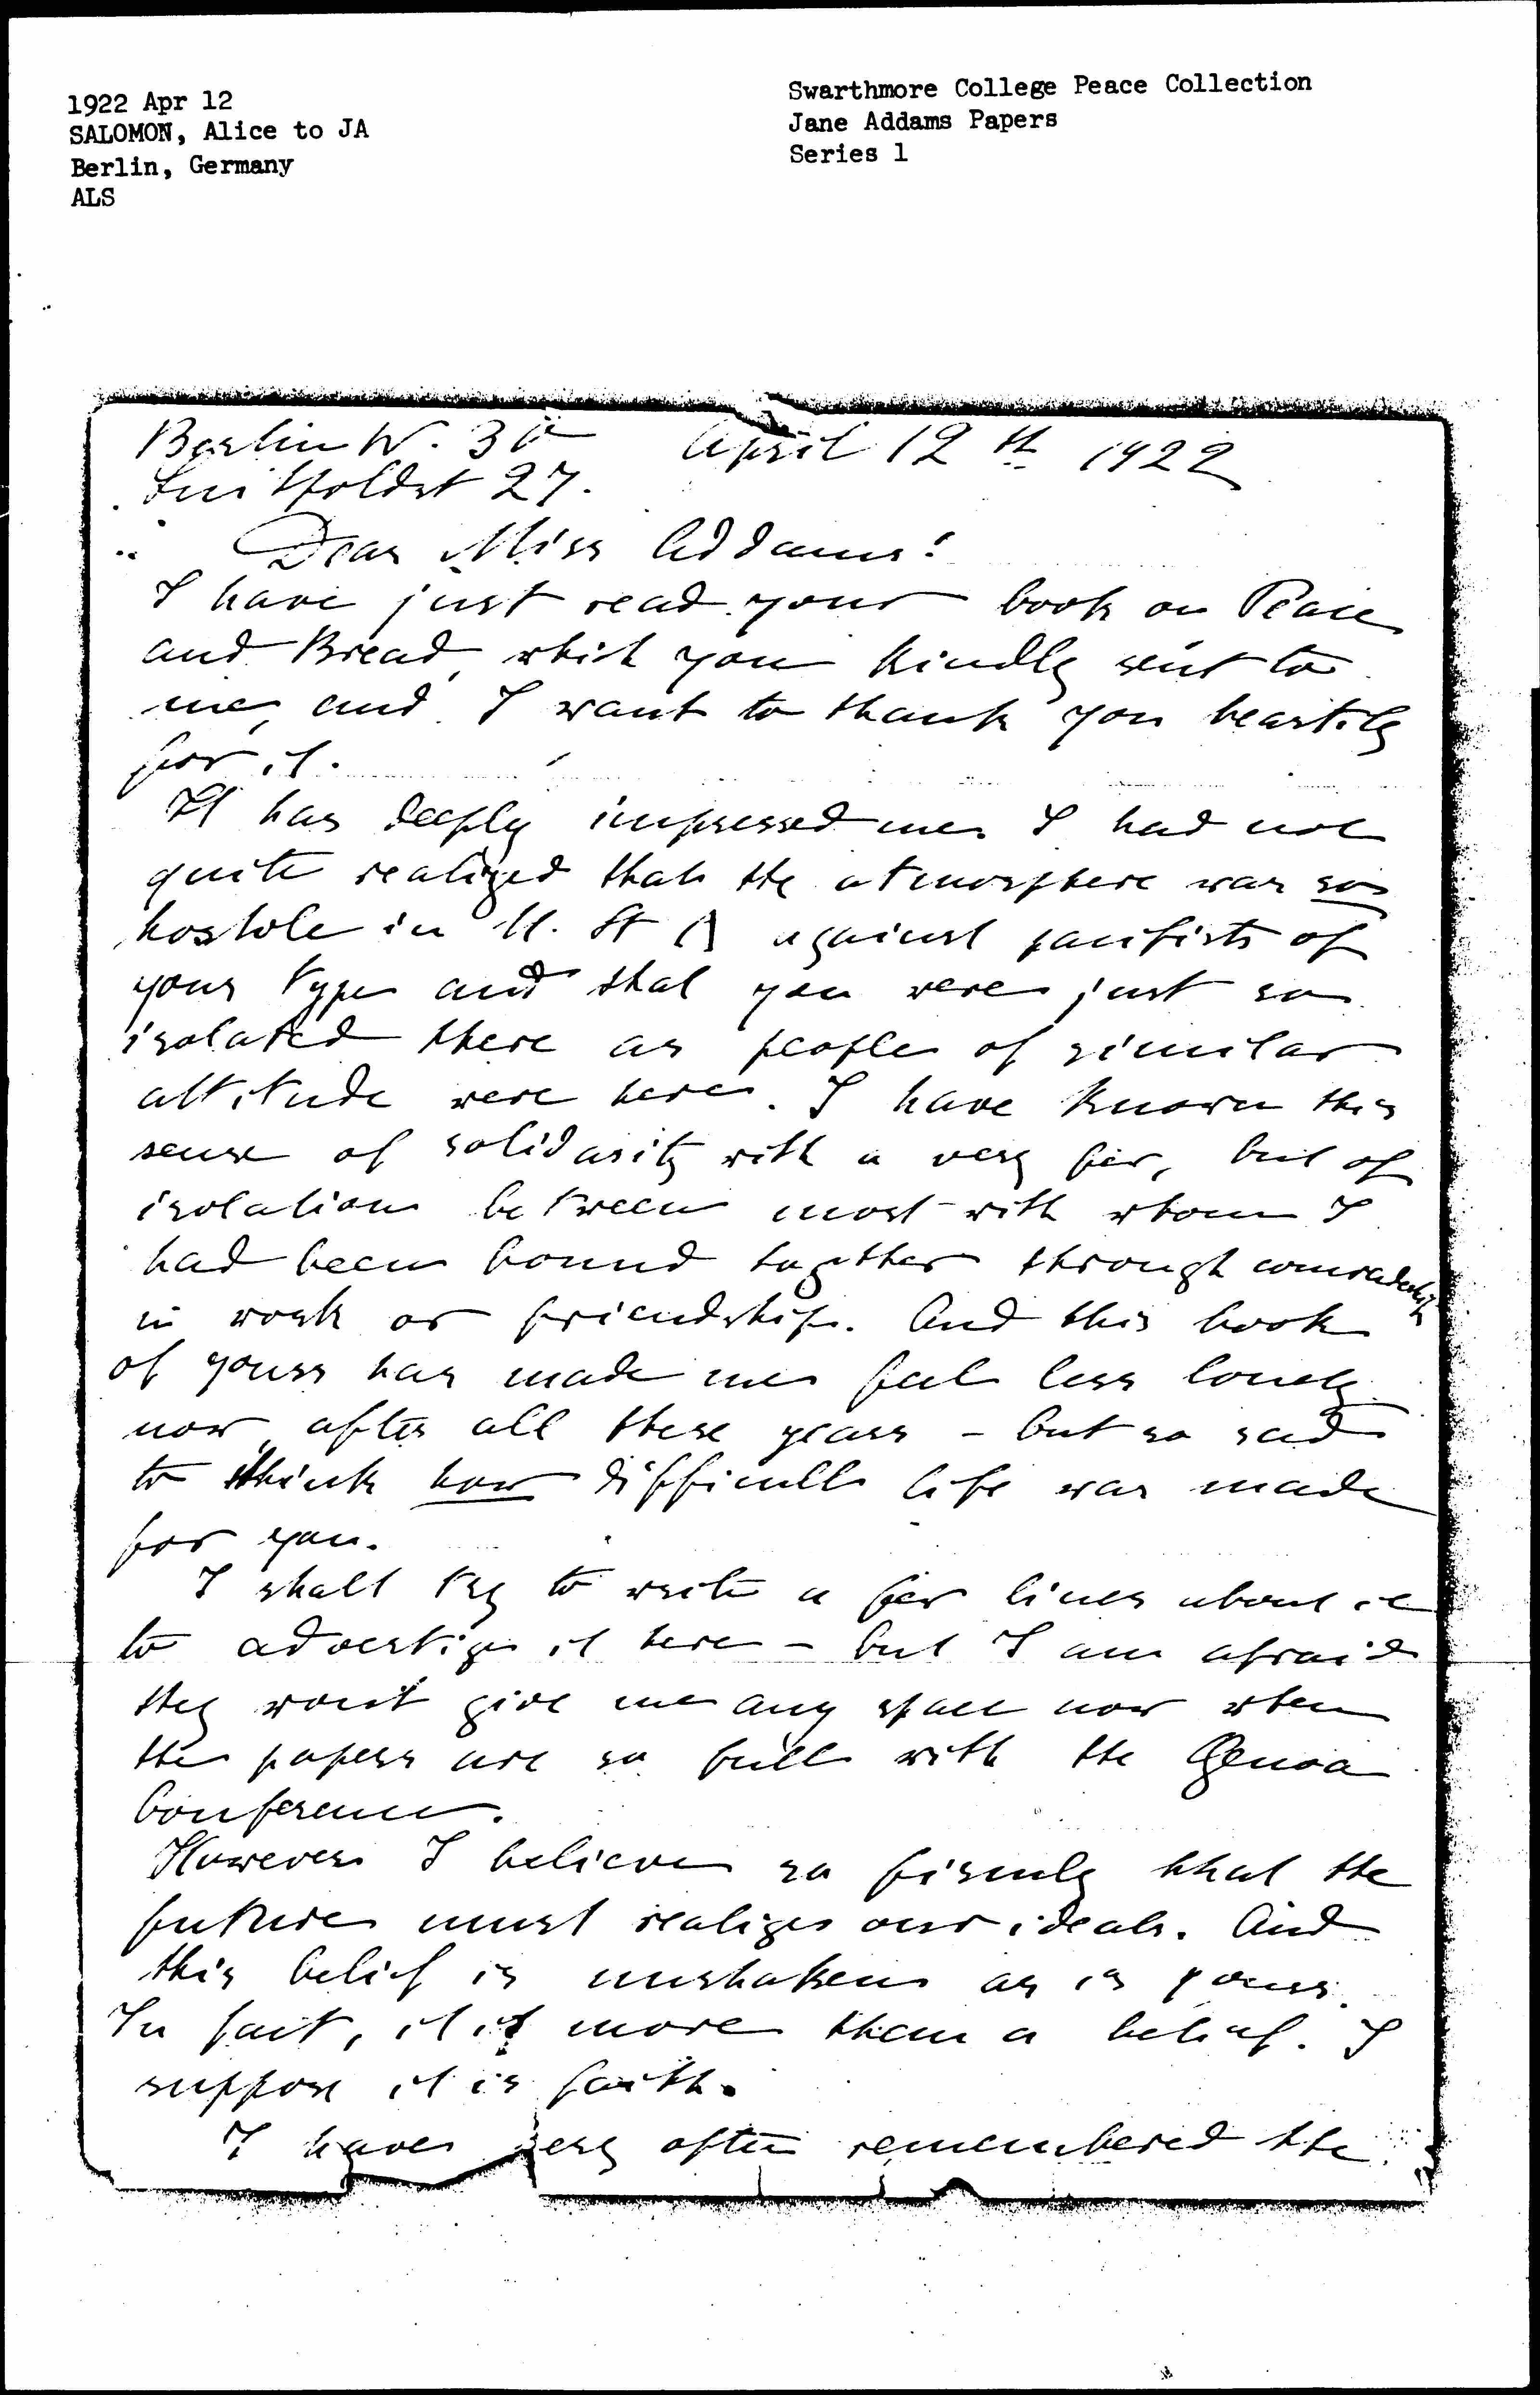 1922 Apr 12
SALOMON, Alice to JA
Berlin, Germany
ALS
Swarthmore College Peace Collection
Jane Addams Papers
Series 1
Berlin W. 30 April 12th 1922
Luitpoldst 27.
Dear Miss Addams!
I have just read your book on Peace
and Bread, which you kindly sent to
me, and I want to thank you heartily
for it.
It has deeply impressed me. I had not
quite realized that the atmosphere was so
hostile in U. St A against pacifists of
your type and that you were just so
isolated there as people of similar
attitude were here. I have known this
sense of solidarity with a very few, but of
isolation between most with whom I
had been bound together through comradeship
in work or friendship. And this book
of yours has made me feel less lonely
now after all these years - but so sad
to think how difficult life was made
for you.
I shall try to write a few lines about it
to advertize it here - but I am afraid
they won't give me any space now when
the papers are so full with the Genoa
Conference.
However I believe so firmly that the
future must realize our ideals. And
this belief is unshaken as is yours.
In fact, it is more than a belief. I
suppose it is faith.
I have very often remembered the